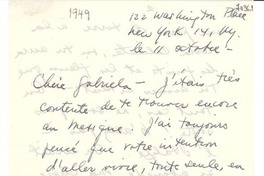 1949
122 Washington Place
New York 14, Ny.
le 11 octobre -
Chère Gabriela - J'étais très
contente de te trouver encore
au Mexique. J'ai toujours
pensé que votre intention
d'aller vivre, toute seule, en